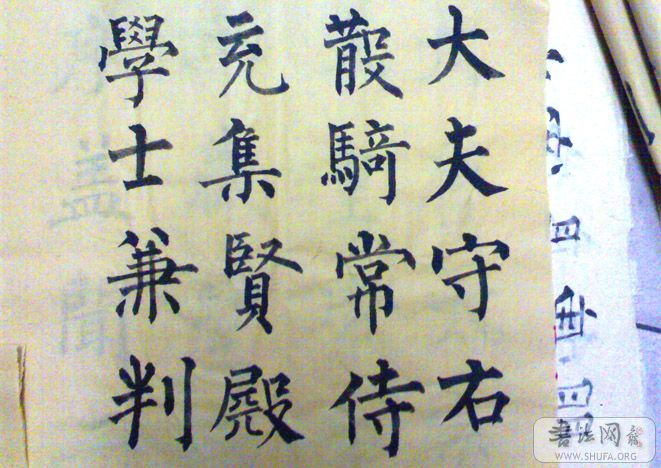 大夫守右
散騎常侍
充集賢殿
學士兼判
蓋聞
書法网
WWW.SHUFA.ORG